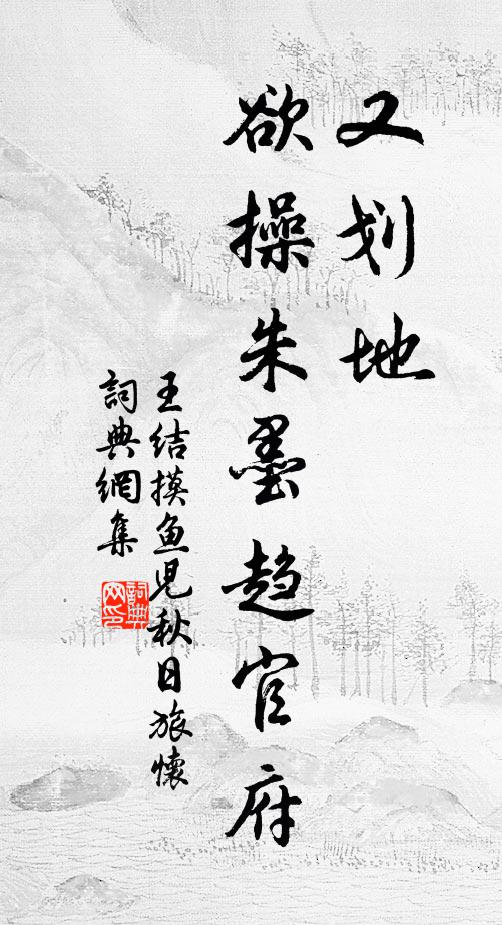 又划地
欲操朱墨趋官府
王结摸鱼儿秋日旅懷
詞典網集
詞典網印